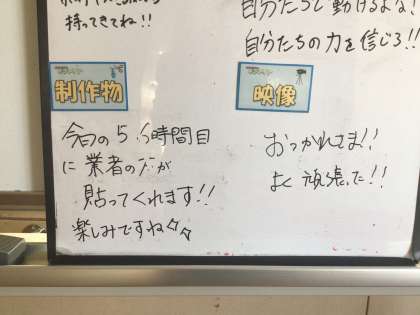 持ってきてね!!
自分たちで動けるよな!
自分たちの力を信じろ!!
制作物
今日の5、6時間目
に業者の方が
貼ってくれます!!
楽しみですね
映像
おつかれさま!!
よく頑張った!!